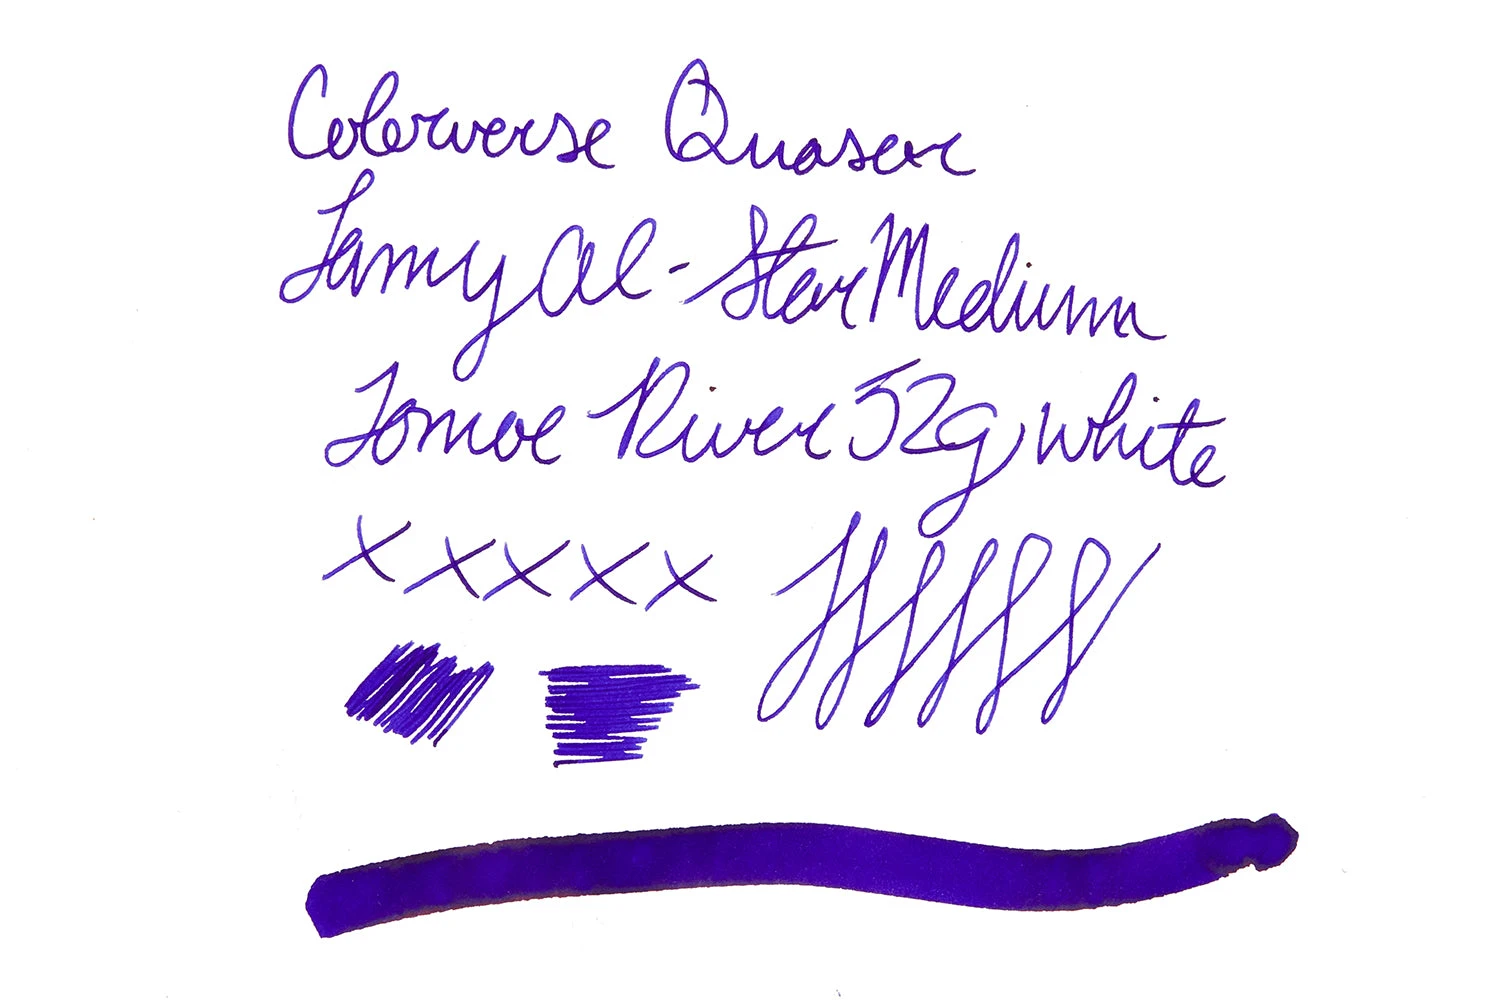 Colorverse Quasar
Lamy Al-Star Medium
Tomoe River 52g white
x x x x x